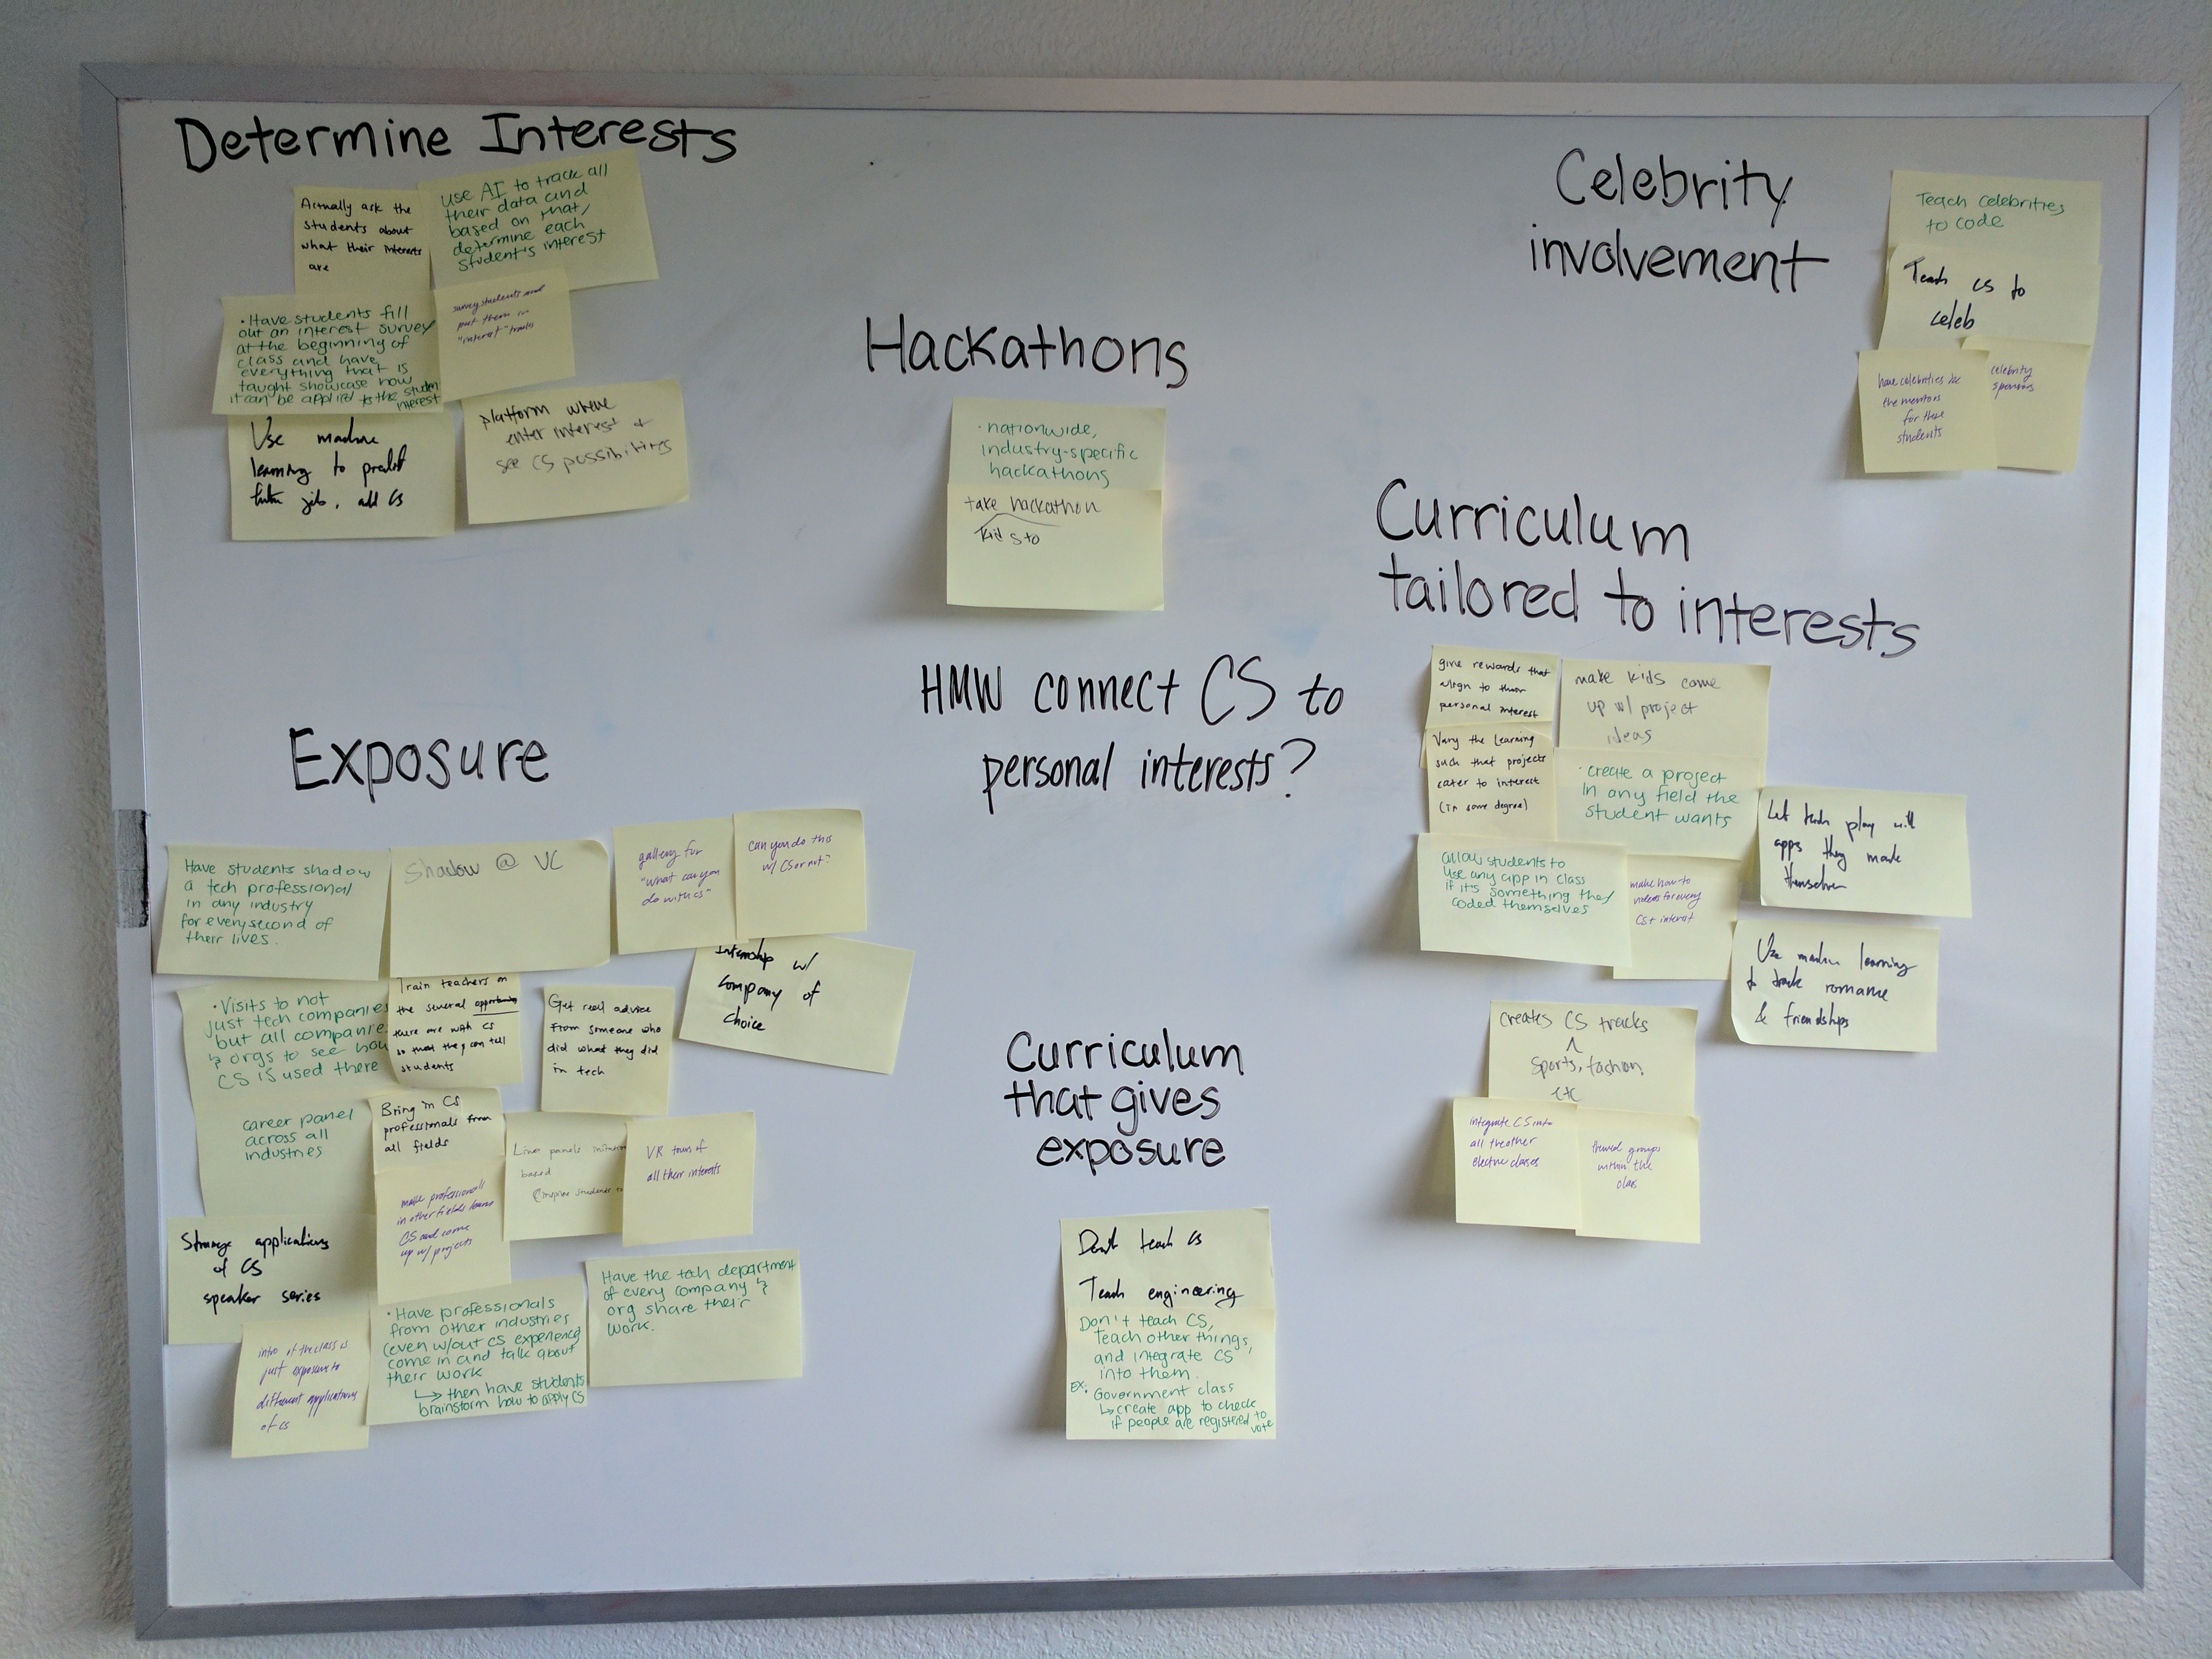 Determine Interests
Actually ask the
students about
what their interests
are
use AI to track all
their data and
based on that,
determine each
student's interest
• Have students fill
out an interest survey
at the beginning of
class and have
everything that is
taught showcase how
it can be applied to the student
interest
survey students and
put them in
"interest" tracks
Use machine
learning to predict
future job, add CS
platform where
enter interest +
see CS possibilities
Hackathons
• nationwide,
industry-specific
hackathons
take hackathon
kids to
Celebrity
involvement
Teach celebrities
to code
Teach CS to
celeb
have celebrities be
the mentors
for these
students
celebrity
sponsors
HMW connect CS to
personal interests?
Curriculum
tailored to interests
give rewards that
align to their
personal interest
make kids come
up w/ project
ideas
Vary the learning
such that projects
cater to interest
(in some degree)
• create a project
in any field the
student wants
Let them play with
apps they made
themselves
allow students to
use any app in class
if it's something they
coded themselves
make how to
videos for every
CS + interest
Use machine learning
to track romance
& friendships
creates CS tracks
^
sports, fashion,
etc
integrate CS into
all the other
elective classes
themed groups
within the
class
Exposure
Have students shadow
a tech professional
in any industry
for every second of
their lives.
Shadow @ VC
gallery for
"what can you
do with CS"
can you do this
w/ CS or not?
• Visits to not
just tech companies
but all companies
& orgs to see how
CS is used there
Train teachers on
the several opportunities
there are with CS
so that they can tell
students
Get real advice
from someone who
did what they did
in tech
Internship w/
company of
choice
career panel
across all
industries
Bring in CS
professionals from
all fields
Line panels
based
(inspire students to
VR tours of
all their interests
make professionals
in other fields learn
CS and come
up w/ projects
Strange applications
of CS
speaker series
intro of the class is
just exposure to
different applications
of CS
• Have professionals
from other industries
(even w/out CS experience)
come in and talk about
their work
↳ then have students
brainstorm how to apply CS
Have the tech department
of every company &
org share their
work.
Curriculum
that gives
exposure
Don't teach CS
Teach engineering
Don't teach CS,
teach other things,
and integrate CS
into them.
EX. Government class
↳ create app to check
if people are registered to
vote